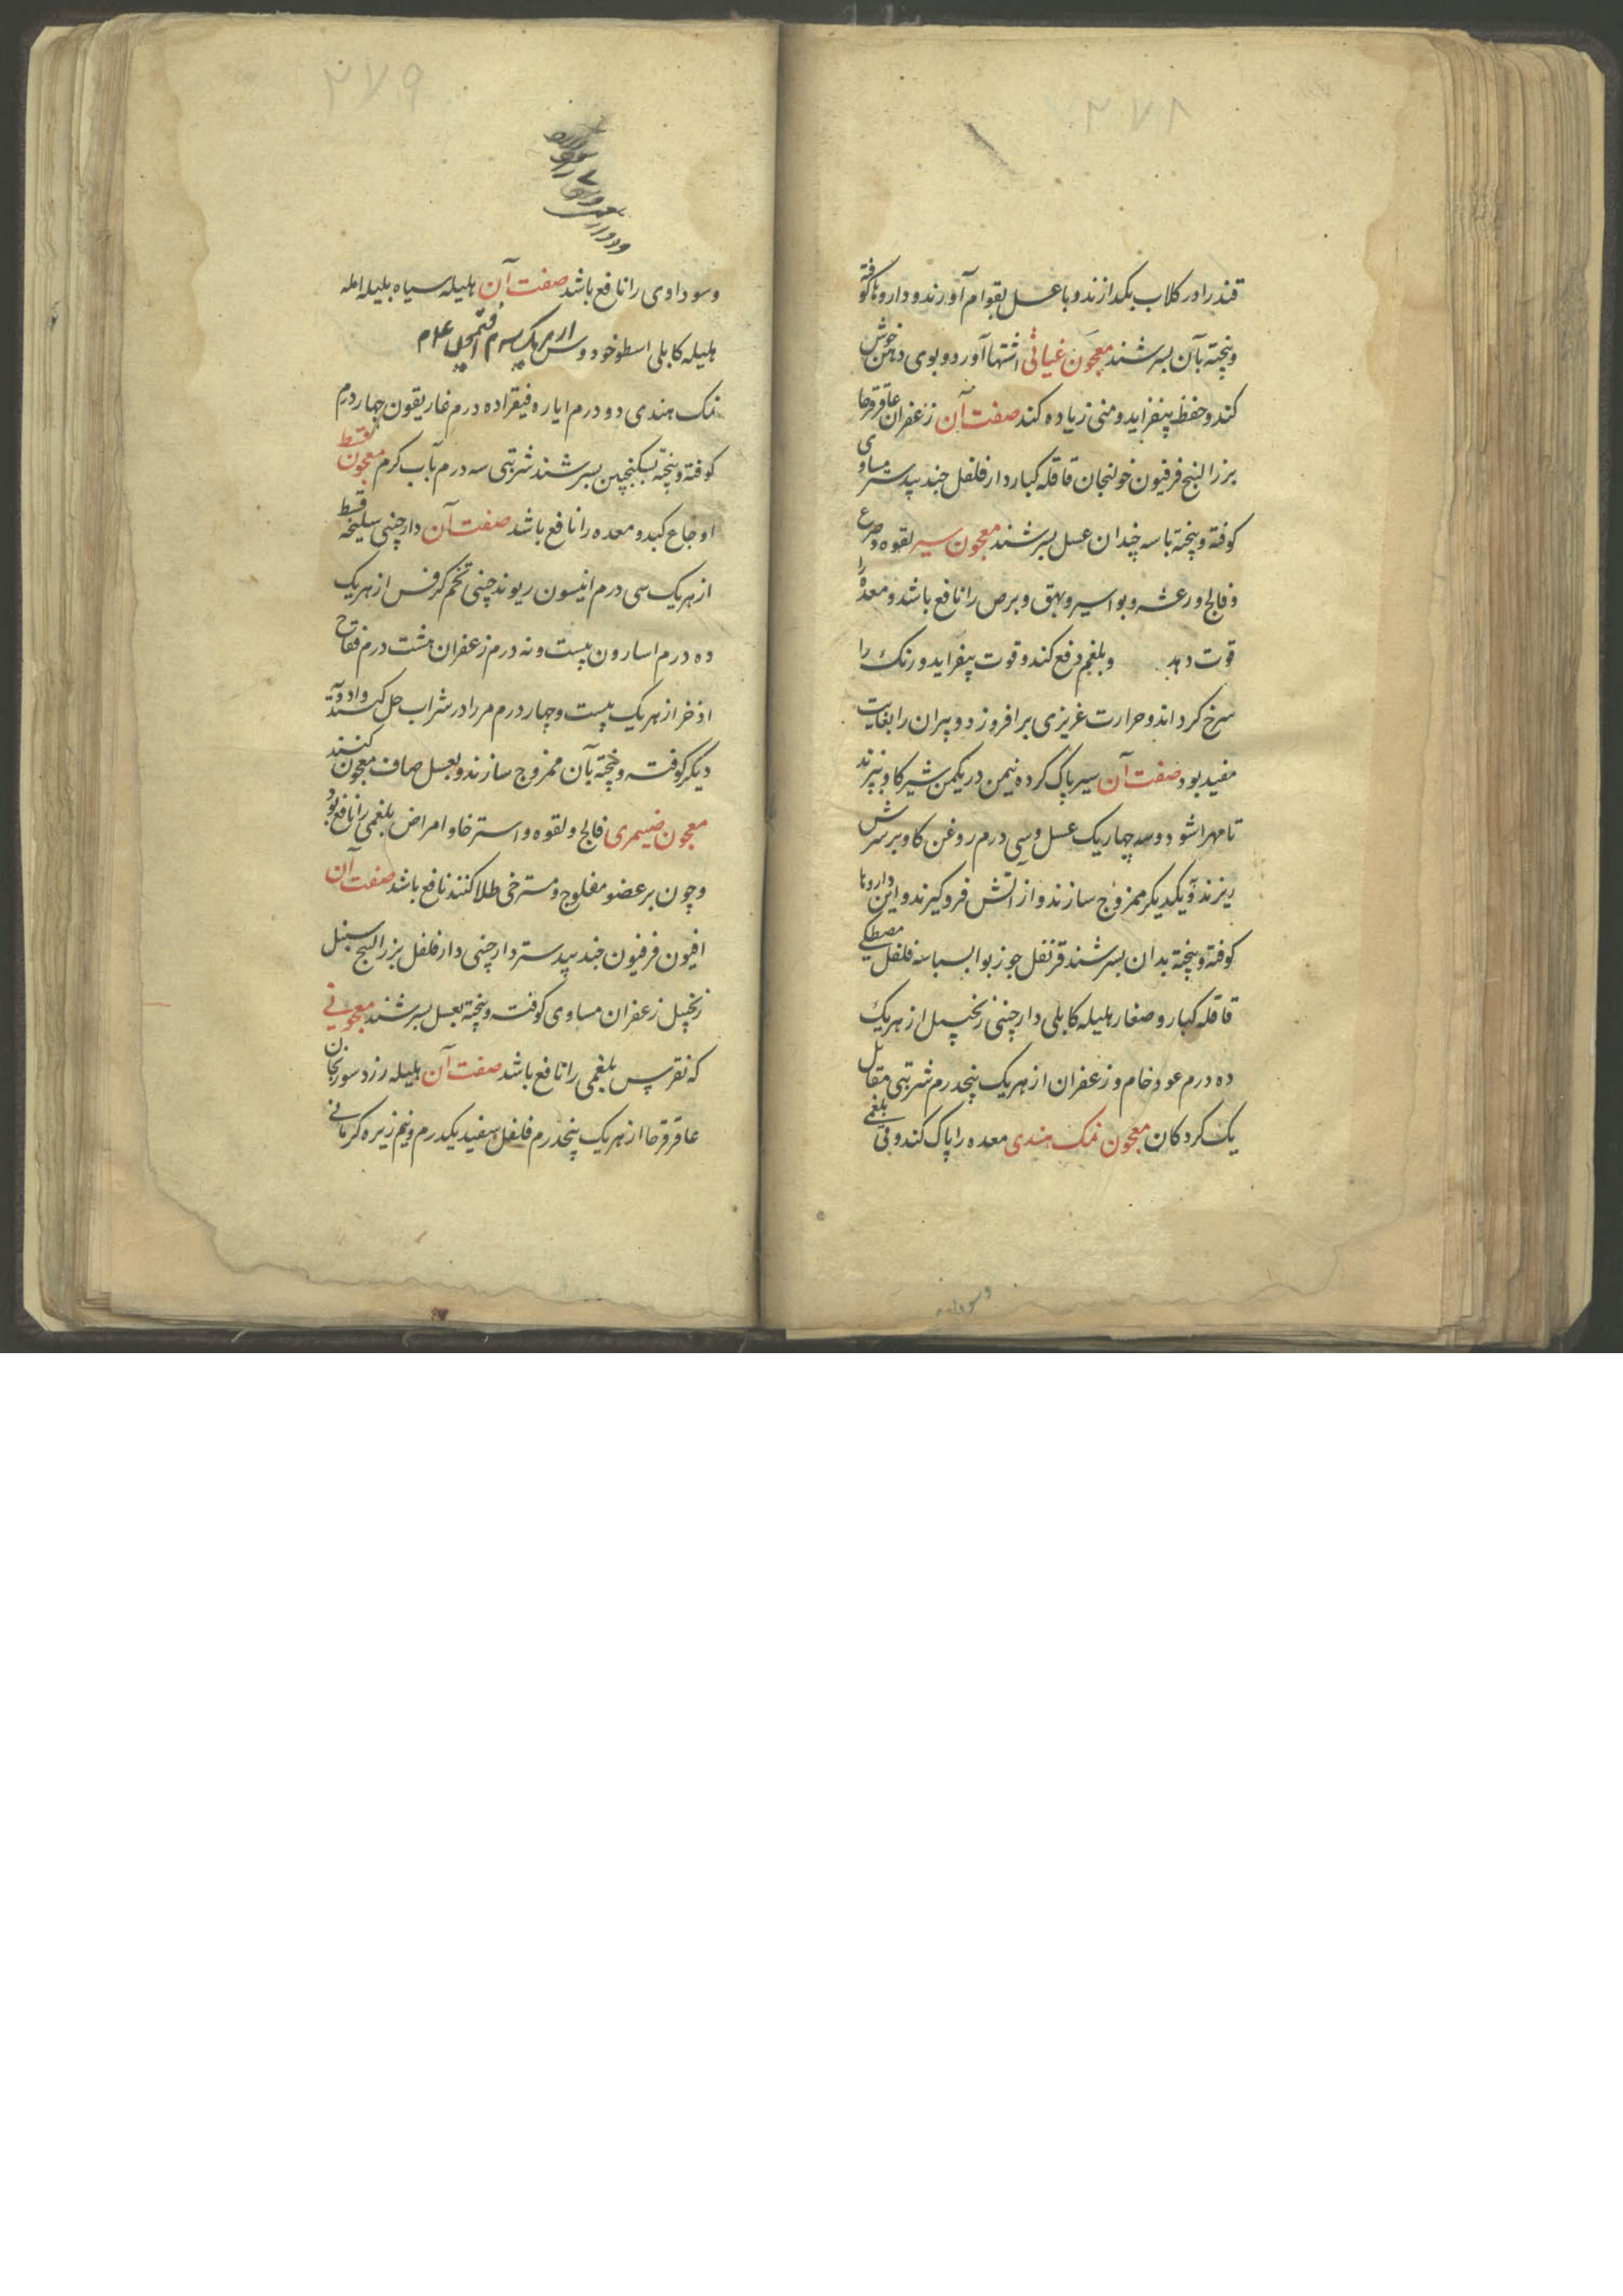 ۲۷۸
قند را در کلاب بکدازند و با عسل بقوام آورند و داروها کوفته
و پخته بآن بسرشند معجون غیاثی اشتها آورد و بوی دهن خوش
کند و حفظ بیفزاید و منی زیاده کند صفت آن زعفران عاقرقرحا
بزرالبنج فرفیون خولنجان قاقله کبار دارفلفل جندبیدستر مساوی
کوفته و پخته با سه چندان عسل بسرشند معجون سیر لقوه و صرع
و فالج و رعشه و بواسیر و بهق و برص را نافع باشد و معده را
قوت دهد و بلغم دفع کند و قوت بیفزاید و رنک را
سرخ کرداند و حرارت غریزی برافروزد و پیران را بغایت
مفید بود صفت آن سیر پاک کرده نیمن در یکمن شیر کاو بپزند
تا مهرا شود و سه چهاریک عسل و سی درم روغن کاو بر سرش
ریزند و بیکدیکر ممزوج سازند و از آتش فروکیرند و این داروها
کوفته و پخته بدان بسرشند قرنفل جوزبوا بسباسه فلفل مصطکی
قاقله کبار و صغار هلیله کابلی دارچینی زنجبیل از هر یک
ده درم عود خام و زعفران از هر یک پنجدرم شربتی مقابل
یک کردکان معجون نمک هندی معده را پاک کند و قی بلغمی
۲۷۹
و سوداوی را نافع باشد صفت آن هلیله سیاه بلیله امله
هلیله کابلی اسطوخودوس از هر یک
نمک هندی دو درم ایاره فیقرا ده درم غاریقون چهار درم
کوفته و پخته بسکنجبین بسرشند شربتی سه درم بآب کرم معجون قسط
اوجاع کبد و معده را نافع باشد صفت آن دارچینی سلیخه قسط
از هر یک سی درم انیسون ریوند چینی تخم کرفس از هر یک
ده درم اسارون بیست و نه درم زعفران هشت درم فقاح
اذخر از هر یک بیست و چهار درم مر را در شراب حل کنند و ادویه
دیکر کوفته و پخته بآن ممزوج سازند و بعسل صاف معجون کنند
معجون ضیمری فالج و لقوه و استرخا و امراض بلغمی را نافع بود
و چون بر عضو مفلوج و مسترخی طلا کنند نافع باشد صفت آن
افیون فرفیون جندبیدستر دارچینی دارفلفل بزرالبنج سنبل
زنجبیل زعفران مساوی کوفته و پخته بعسل بسرشند معجونی
که نقرس بلغمی را نافع باشد صفت آن هلیله زرد سورنجان
عاقرقرحا از هر یک پنجدرم فلفل سفید یکدرم و نیم زیره کرمانی